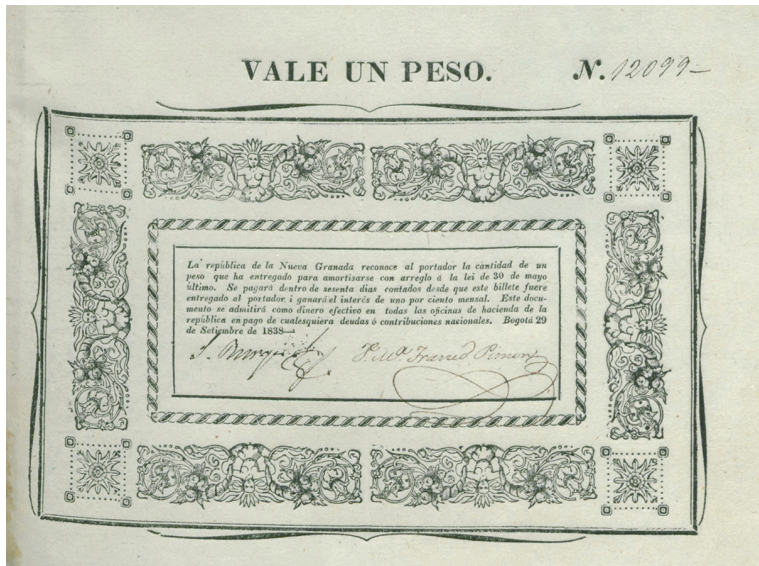 VALE UN PESO. N. 12099
La república de la Nueva Granada reconoce al portador la cantidad de un
peso que ha entregado para amortizarse con arreglo á la lei de 30 de mayo
último. Se pagará dentro de sesenta dias contados desde que este billete fuere
entregado al portador i ganará el interés de uno por ciento mensal. Este docu-
mento se admitirá como dinero efectivo en todas las oficinas de hacienda de la
república en pago de cualesquiera deudas ó contribuciones nacionales. Bogotá 29
de Setiembre de 1838